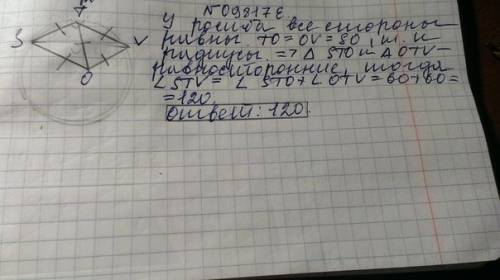 N09817E
У ромба все стороны
равны TO=OV=SO, т. к
радиусы => Δ STO и Δ OTV-
равносторонние, тогда
∠STV = ∠ STO+∠ OTV = 60+60=
=120
Ответ: 120
T
S
V
O